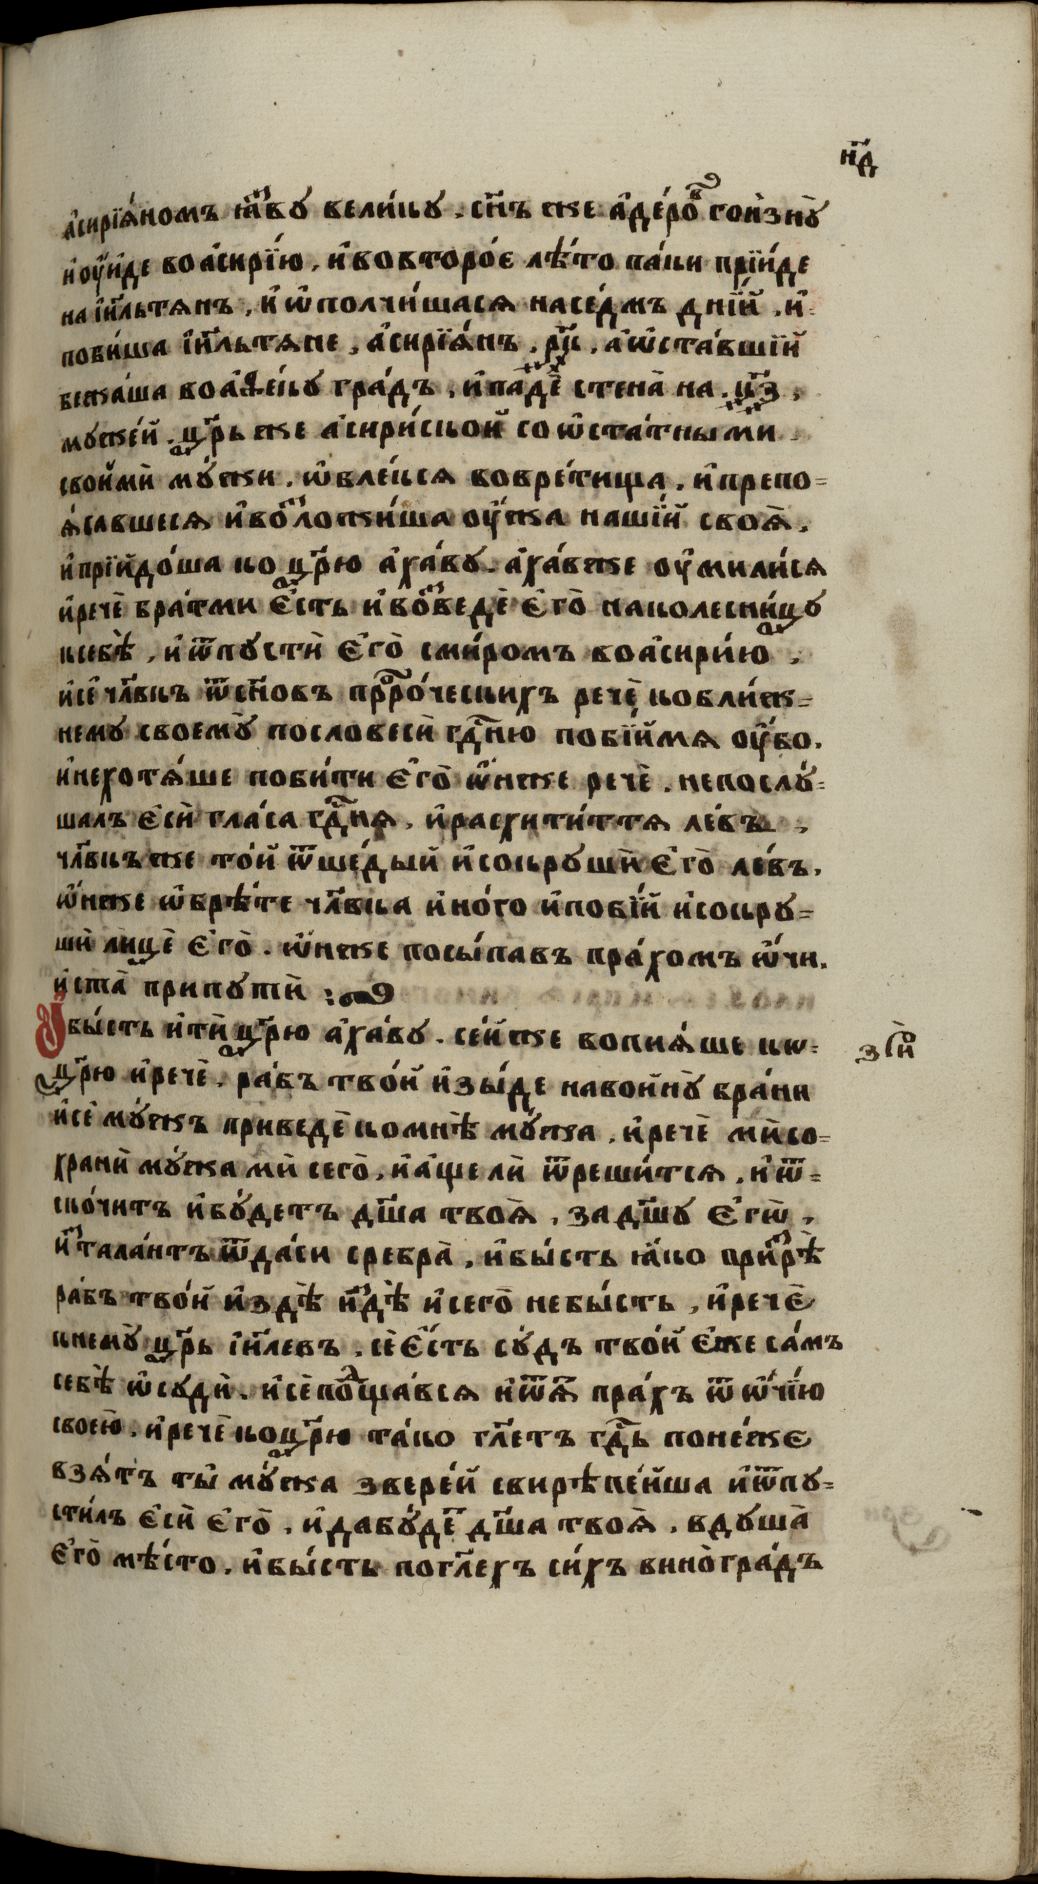 н҃д
асирїѧ́номъ ꙗ҆́зву вели́ку . сн҃ъ же а҆де́ровъ гои҆зну̀
и҆ оу҆и́де во а҆сирі́ю , и҆ во второ́є лѣ́то па́ки прїи́де
на і҆и҃льтянъ , и҆ ѡ҆полчи́шася на се́дмъ дні́й , и҆
поби́ша і҆и҃льтяне , а҆сирїѧ́нъ . р҃к . а҆ ѡ҆ста́вшїй
бежа́ша во а҆фе́ку гра́дъ , и҆ падѐ стена̀ на . к҃з ,
муже́й . цр҃ь же а҆сири́ской со ѡ҆ста́тными
свои́ми му́жи . ѡ҆бле́кся во вре́тища , и҆ препо=
ѧ́савшеся и҆ возложи́ша оу҆́жа на ши́й своѧ̀ ,
и҆ прїидо́ша ко цр҃ю а҆ха́ву . а҆ха́в же оу҆мили́ся
и҆ речѐ бра́т ми є҆́сть и҆ возведѐ є҆го̀ на колесни́цу
к себѣ̀ , и҆ ѿпустѝ є҆го̀ с ми́ромъ во а҆сири́ю ,
и҆ сѐ чл҃вкъ ѿ сн҃овъ прⷪ҇ро́ческихъ речѐ ко бли́ж=
нему своему̀ по словесѝ гдⷭ҇ню поби́й мя оу҆́бо .
и҆ не хотѧ́ше поби́ти є҆го̀ ѡ҆́н же речѐ . не послу́=
шалъ є҆сѝ гла́са гдⷭ҇ня , и҆ расхити́т тя ле́въ ,
чл҃вкъ же то́й ѿше́дый и҆ сокрушѝ є҆го̀ ле́въ .
ѡ҆́н же ѡ҆брѣ́те чл҃вка и҆но́го и҆ поби́й и҆ сокру=
шѝ лицѐ є҆го̀ . ѡ҆́н же посы́павъ пра́хомъ ѡ҆́чи .
и҆ ста̀ при путѝ :
И҆ бы́сть и҆тѝ цр҃ю а҆ха́ву . се́й же вопиѧ́ше кѡ
з҃і
цр҃ю и҆ речѐ . ра́бъ тво́й и҆зы́де на войну̀ бра́ни
и҆ сѐ му́жъ приведѐ ко мнѣ̀ му́жа , и҆ речѐ мѝ со=
хранѝ му́жа мѝ сего̀ , и҆ а҆́ще лѝ ѿреши́тся , и҆ ѿ=
ско́читъ и҆ бу́детъ дш҃а твоѧ̀ , за дш҃у є҆гѡ̀ ,
и҆лѝ тала́нтъ ѿда́си сребра̀ , и҆ бы́сть ꙗ҆́ко призрѣ̀
ра́бъ тво́й и҆ здѣ̀ и҆ ндѣ̀ и҆ сего̀ не бы́сть , и҆ речѐ
к нему̀ цр҃ь і҆и҃левъ . сѐ є҆́сть су́дъ тво́й є҆́же са́мъ
себѣ̀ ѡ҆судѝ . и҆ сѐ потща́вся и҆ ѿѧ пра́хъ ѿ ѻ҆́чїю
своє́ю , и҆ речѐ ко цр҃ю та́ко гл҃етъ гдⷭ҇ь поне́же
взѧ́тъ ты̀ му́жа звере́й свирѣпе́йша и҆ ѿпу=
сти́лъ є҆сѝ є҆го̀ , и҆ да бу́детъ дш҃а твоѧ̀ , в душа̀
є҆го̀ мѣ́сто . и҆ бы́сть по гл҃ехъ си́хъ виногра́дъ